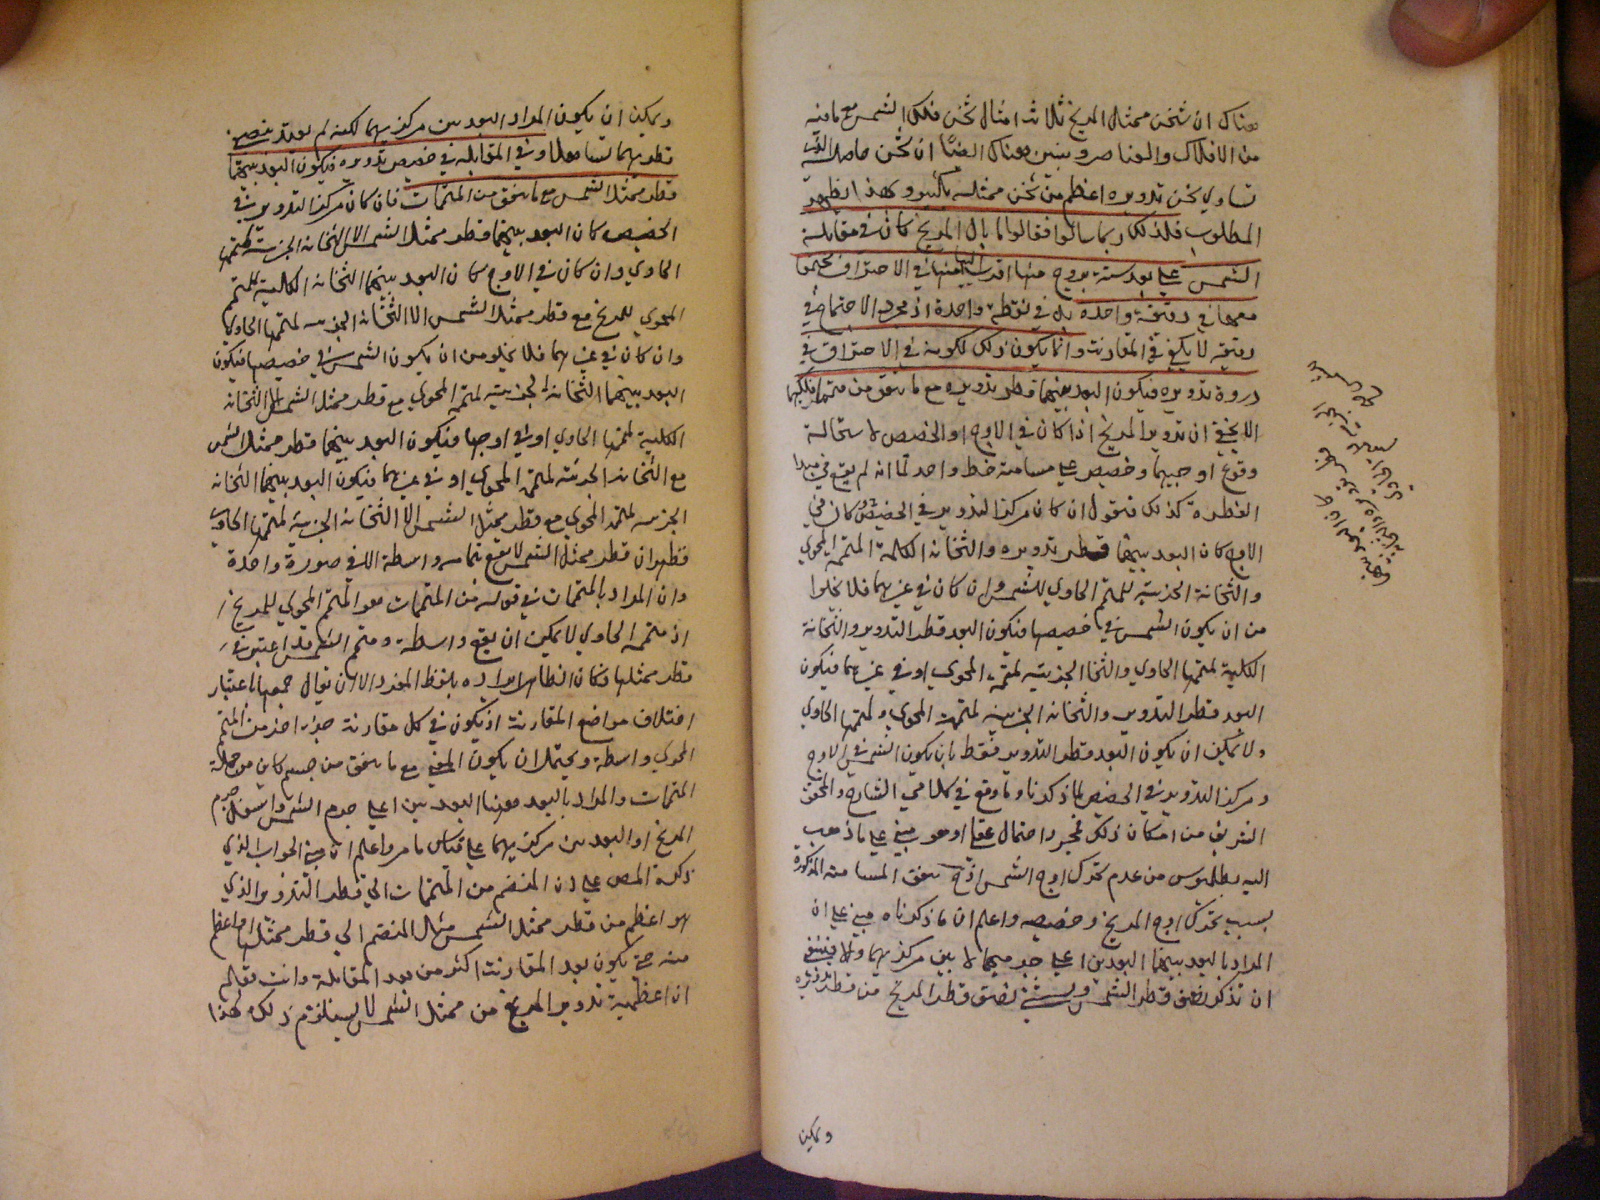 هناك ان ثخن ممثل المريخ ثلاثة امثال ثخن فلك الشمس مع ما فيه
من الافلاك والعناصر وبين هناك ايضا ان ثخن حامله الذي
تساوي ثخن تدويره اعظم من ثخن ممثله بكثير وبهذا يظهر
المطلوب فلذلك ربما سالوا فقالوا ما بال المريخ كان في مقابلة
الشمس على بعد ستة بروج منها اقرب اليها منها في الاحتراق مجتمعا
معها في دقيقة واحدة بل في نقطة واحدة اذ مجرد الاجتماع في
دقيقة لا يكفي في المقارنة وانما يكون ذلك لكونه في الاحتراق في
ذروة تدويره فيكون البعد بينهما قطر تدويره مع ما يتفق من متممات فلكيهما
لا يخفى ان تدوير المريخ اذا كان في الاوج او الحضيض لاستحالة
وقوع اوجيهما وحضيض على مسامتة خط واحد لما انه لم يقع في مبدا
الفطرة كذلك فنقول ان كان مركز التدوير في الحضيض وكان في
الاوج كان البعد بينهما قطر تدويره والثخانة الكلية لمتممه المحوي
والثخانة الجزئية للمتمم الحاوي للشمس وان كان في غيرهما فلا يخلوا
من ان يكون الشمس في حضيضها فيكون البعد قطر التدوير والثخانة
الكلية لمتممها الحاوي والثخانة الجزئية لمتممه المحوي او في غيرهما فيكون
البعد قطر التدوير والثخانة الجزئية لمتممه المحوي ولمتممها الحاوي
ولا يمكن ان يكون البعد قطر التدوير فقط بان يكون الشمس في الاوج
ومركز التدوير في الحضيض لما ذكرنا وما وقع في كلامي الشارح والمحقق
الشريف من امكان ذلك فمجرد احتمال عقلي او هو مبني على ما ذهب
اليه بطلميوس من عدم تحرك اوج الشمس اذ ح يتفق المسامتة المذكورة
بسبب تحرك اوج المريخ وحضيضه واعلم ان ما ذكرناه مبني على ان
المراد بالبعد بينهما البعد بين اعلى جرميهما لا بين مركزيهما والا فينبغي
ان تذكر نصف قطر الشمس ويستثنى نصف قطر المريخ من قطر تدويره
ويمكن
ويمكن ان يكون المراد البعد بين مركزيهما لكنه لم يعتد بنصف
قطريهما تساهلا وفي المقابلة في حضيض تدويره فيكون البعد بينهما
قطر ممثل الشمس مع ما يتفق من المتممات فان كان مركز التدوير في
الحضيض كان البعد بينهما قطر ممثل الشمس الا الثخانة الجزئية لمتممها
الحاوي وان كان في الاوج كان البعد بينهما الثخانة الكلية للمتمم
المحوي للمريخ مع قطر ممثل الشمس الا الثخانة الجزئية لمتممها الحاوي
وان كان في غيرهما فلا يخلو من ان يكون الشمس في حضيضها فيكون
البعد بينهما الثخانة الجزئية لمتممه المحوي مع قطر ممثل الشمس الا الثخانة
الكلية لمتممها الحاوي او في اوجها فيكون البعد بينهما قطر ممثل الشمس
مع الثخانة الجزئية لمتممه المحوي او في غيرهما فيكون البعد بينهما الثخانة
الجزئية لمتممه المحوي مع قطر ممثل الشمس الا الثخانة الجزئية لمتممها الحاوي
فظهر ان قطر ممثل الشمس لا يقع بتمامه واسطة الا في صورة واحدة
وان المراد بالمتممات في قوله من المتممات هو المتمم المحوي للمريخ
اذ متممه الحاوي لا يمكن ان يقع واسطة ومتمم الشمس قد اعتبر في
قطر ممثلها فكان الظاهر ايراده بلفظ المفرد الا ان يقال جمعها باعتبار
اختلاف مواضع المقارنة اذ يكون في كل مقارنة جزء اخر من المتمم
المحوي واسطة ويحتمل ان يكون المعنى مع ما يتفق من جسم كاين من جملة
المتممات والمراد بالبعد ههنا البعد بين اعلى جرم الشمس واسفل جرم
المريخ او البعد بين مركزيهما على قياس ما مر واعلم ان مبنى الجواب الذي
ذكره المص على ان المنضم من المتممات الى قطر التدوير الذي
هو اعظم من قطر ممثل الشمس مثل المنضم الى قطر ممثلها او اعظم
منه حتى يكون بعد المقارنة اكثر من بعد المقابلة وانت تعلم
ان اعظمية تدوير المريخ من ممثل الشمس لا يستلزم ذلك لهذا